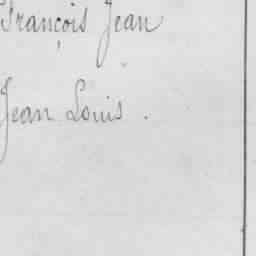 François Jean
Jean Louis.